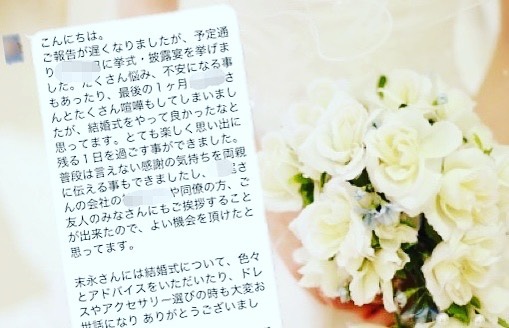 こんにちは。
ご報告が遅くなりましたが、予定通
り 日に挙式・披露宴を挙げま
した。たくさん悩み、不安になる事
もあったり、最後の1ヶ月 さ
んとたくさん喧嘩もしてしまいまし
たが、結婚式をやって良かったなと
思ってます。とても楽しく思い出に
残る1日を過ごす事ができました。
普段は言えない感謝の気持ちを両親
に伝える事もできましたし、 さ
んの会社の や同僚の方、ご
友人のみなさんにもご挨拶すること
が出来たので、よい機会を頂けたと
思ってます。
末永さんには結婚式について、色々
とアドバイスをいただいたり、ドレ
スやアクセサリー選びの時も大変お
世話になり ありがとうございまし